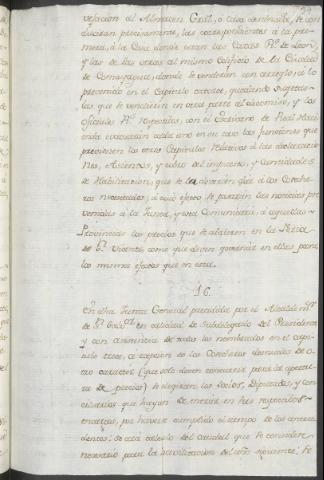 vejacion al Almacen Gral, ó casa destinada, se con
duciran precisamente, las correspondientes á la pri
mera, á la Casa donde estan las Caxas Rs. de Leon,
y las de las otras al mismo edificio de la Ciudad
de Comayagua, donde se venderán con arreglo á lo
prevenido en el Capitulo catorce, quedando sugetas
las que se vendieren en otra parte al decomiso, y los
oficiales Rs. respectivos, con el Escrivano de Real Haci
enda executarán cada uno en su caso las funciones que
previenen los otros Capitulos relativos á las declaracio
nes, Asientos, y cobro del impuesto, y cantidades
de Habilitacion, que se les abonarán alli á los Coseche
ros necesitados; á cuyo efecto se pasarán las noticias pre
venidas á la Junta, y esta Comunicará á aquellas
Provincias los precios que se abrieren en la Feria
de Sn. Vicente como que deven governar en ellas para
los mismos efectos que en esta.
16.
En esta Junta General presidida por el Alcalde mr.
de Sn. Salvor. en calidad de Subdelegado del Presidente
y con asistencia de todos los nombrados en el capi
tulo trece, á excepcion de los Cosecheros
otro caracter (que solo deven concurrir para la apertu
ra de precios) se elegiran los Socios, Diputados, y con
ciliarios que hayan de entrar en sus respectivos
encargos, por haver cumplido el tiempo de los antece
dentes: se hará calculo del caudal que se considere
necesario para la havilitacion del año siguiente; se